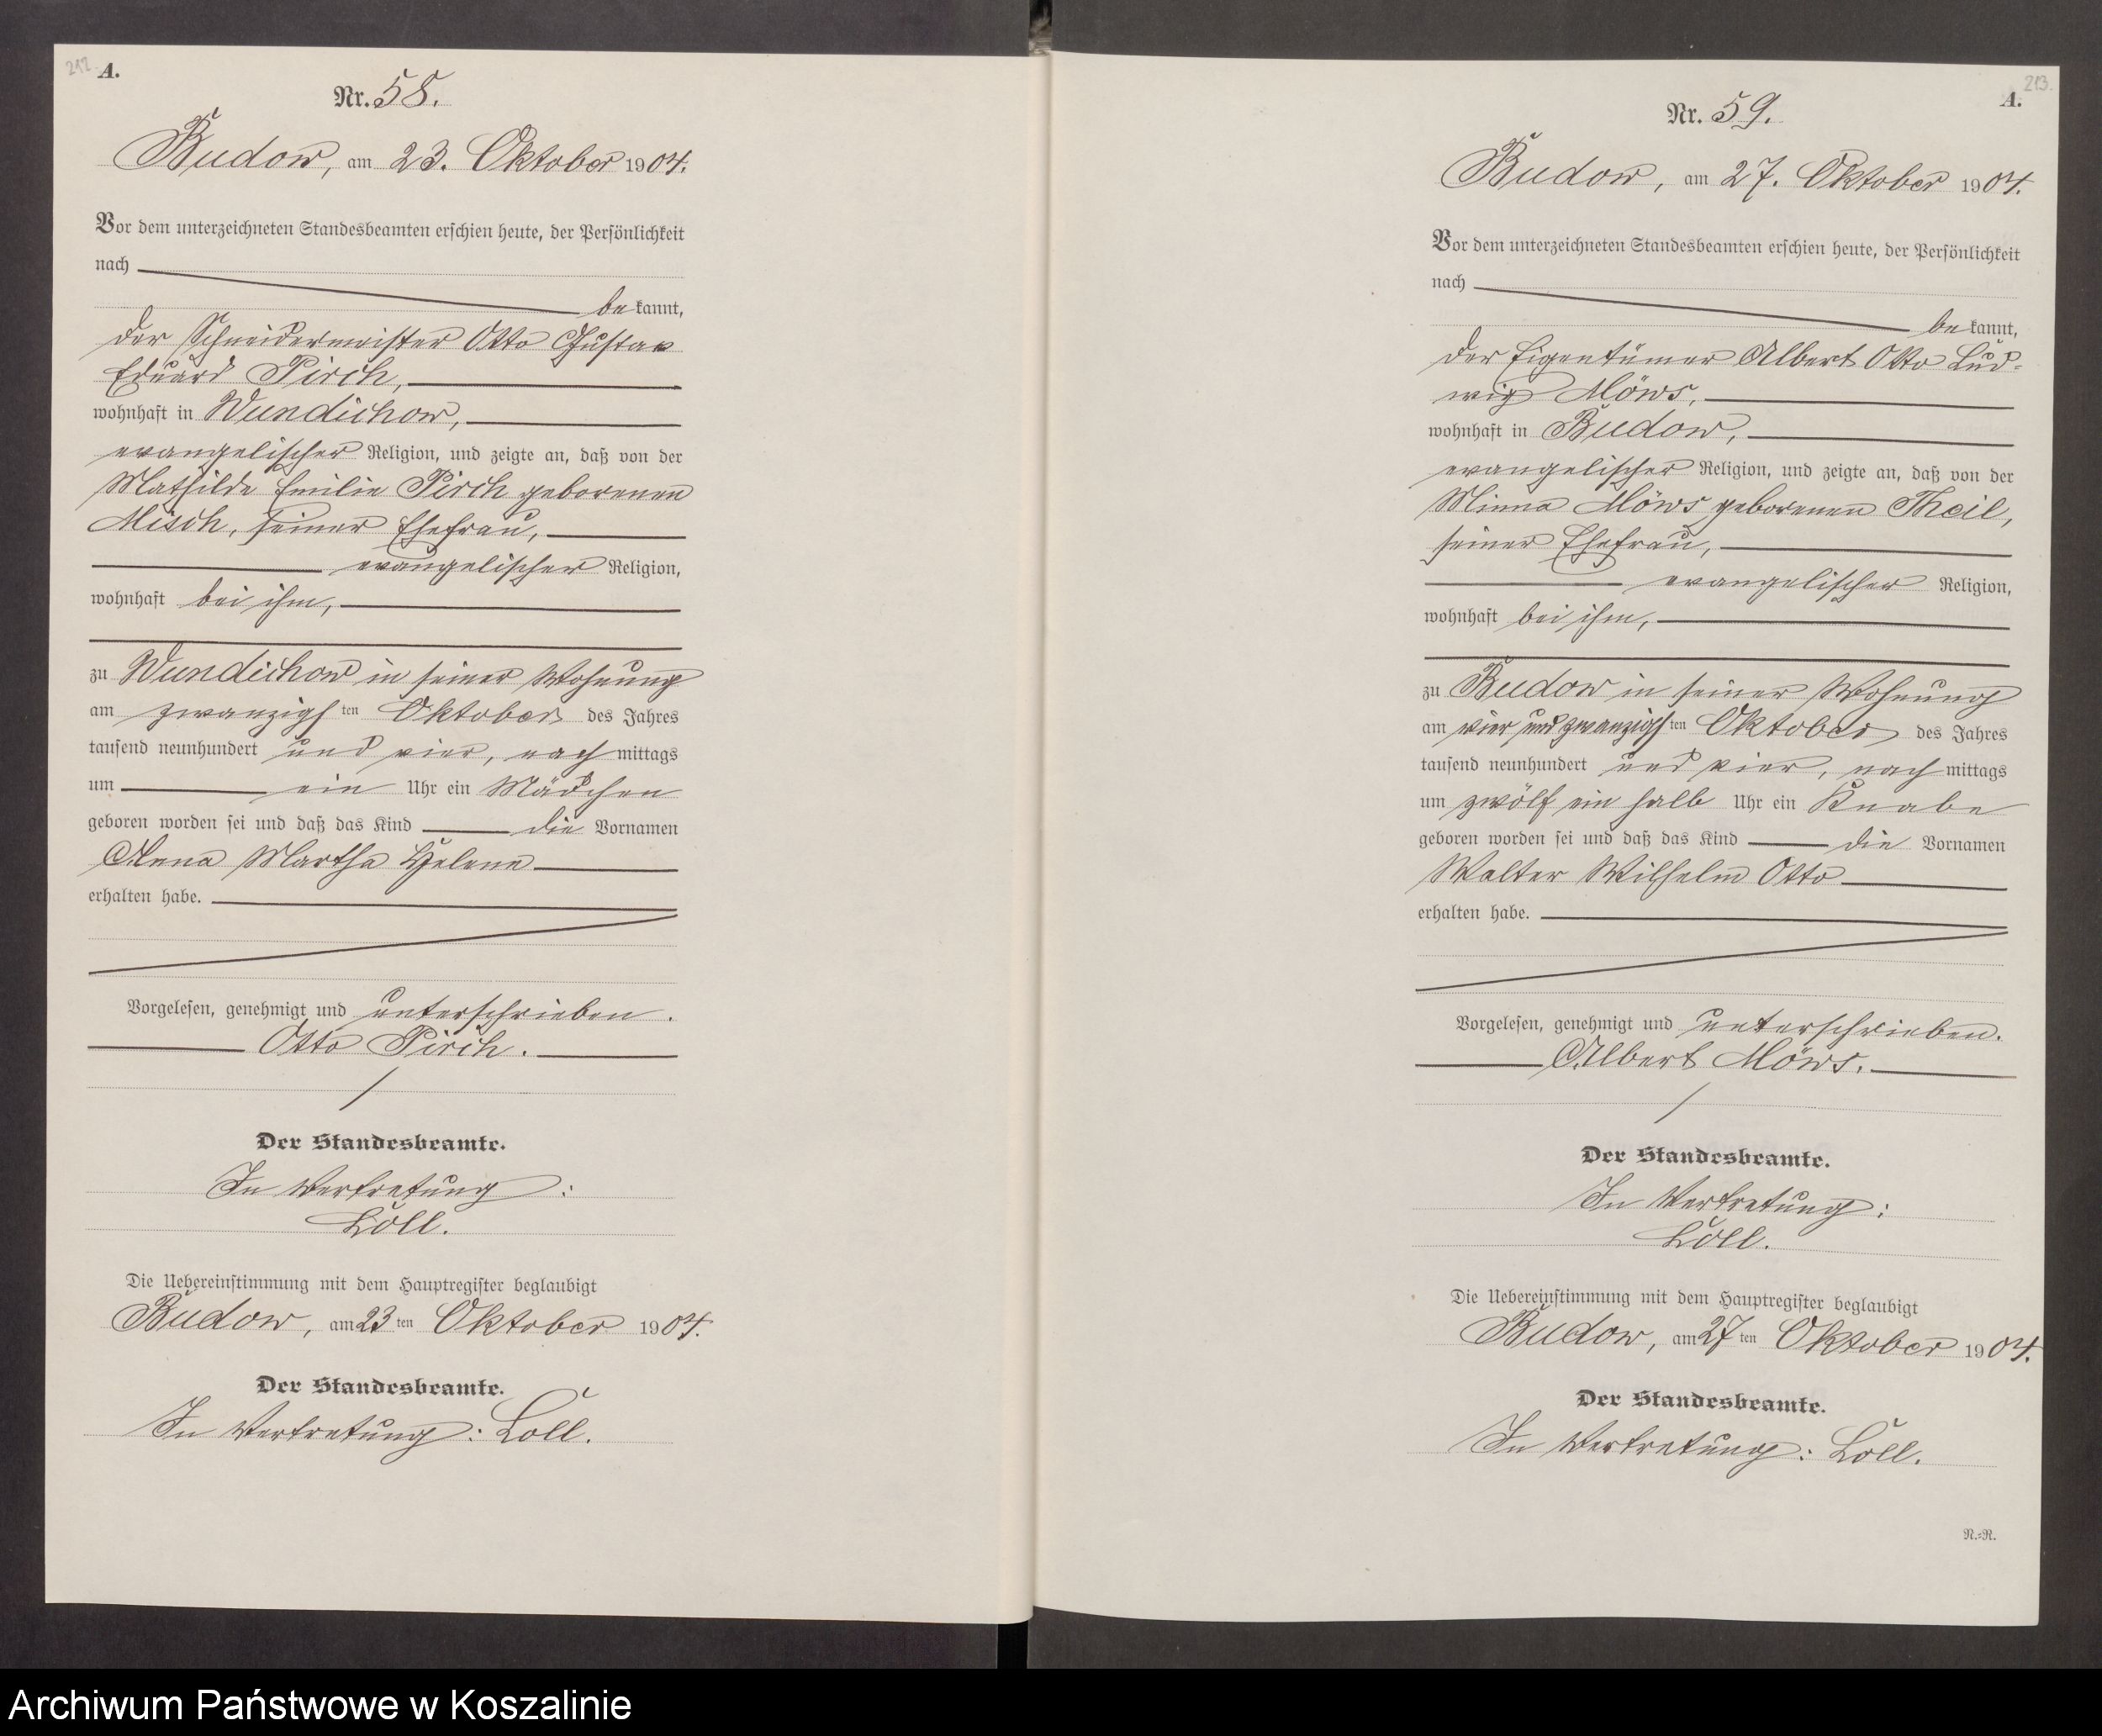 212.
A.
Nr. 58.
Budow, am 23. Oktober 1904.
Vor dem unterzeichneten Standesbeamten erschien heute, der Persönlichkeit
nach
bekannt,
der Schneidermeister Otto Gustav
Eduard Pirch,
wohnhaft in Wundichow,
evangelischer Religion, und zeigte an, daß von der
Mathilde Emilie Pirch geborenen
Misch, seiner Ehefrau,
evangelischer Religion,
wohnhaft bei ihm,
zu Wundichow in seiner Wohnung
am zwanzigsten Oktober des Jahres
tausend neunhundert und vier, nachmittags
um ein Uhr ein Mädchen
geboren worden sei und daß das Kind die Vornamen
Anna Martha Helene
erhalten habe.
Vorgelesen, genehmigt und unterschrieben.
Otto Pirch.
Der Standesbeamte.
In Vertretung:
Loll.
Die Uebereinstimmung mit dem Hauptregister beglaubigt
Budow, am 23ten Oktober 1904.
Der Standesbeamte.
In Vertretung: Loll.
213.
A.
Nr. 59.
Budow, am 27. Oktober 1904.
Vor dem unterzeichneten Standesbeamten erschien heute, der Persönlichkeit
nach
bekannt,
der Eigentümer Albert Otto Lud-
wig Möws,
wohnhaft in Budow,
evangelischer Religion, und zeigte an, daß von der
Minna Möws geborenen Theil,
seiner Ehefrau,
evangelischer Religion,
wohnhaft bei ihm,
zu Budow in seiner Wohnung
am vier und zwanzigsten Oktober des Jahres
tausend neunhundert und vier, nachmittags
um zwölf ein halb Uhr ein Knabe
geboren worden sei und daß das Kind die Vornamen
Walter Wilhelm Otto
erhalten habe.
Vorgelesen, genehmigt und unterschrieben.
Albert Möws.
Der Standesbeamte.
In Vertretung:
Loll.
Die Uebereinstimmung mit dem Hauptregister beglaubigt
Budow, am 27ten Oktober 1904.
Der Standesbeamte.
In Vertretung: Loll.
N.=N.
Archiwum Państwowe w Koszalinie